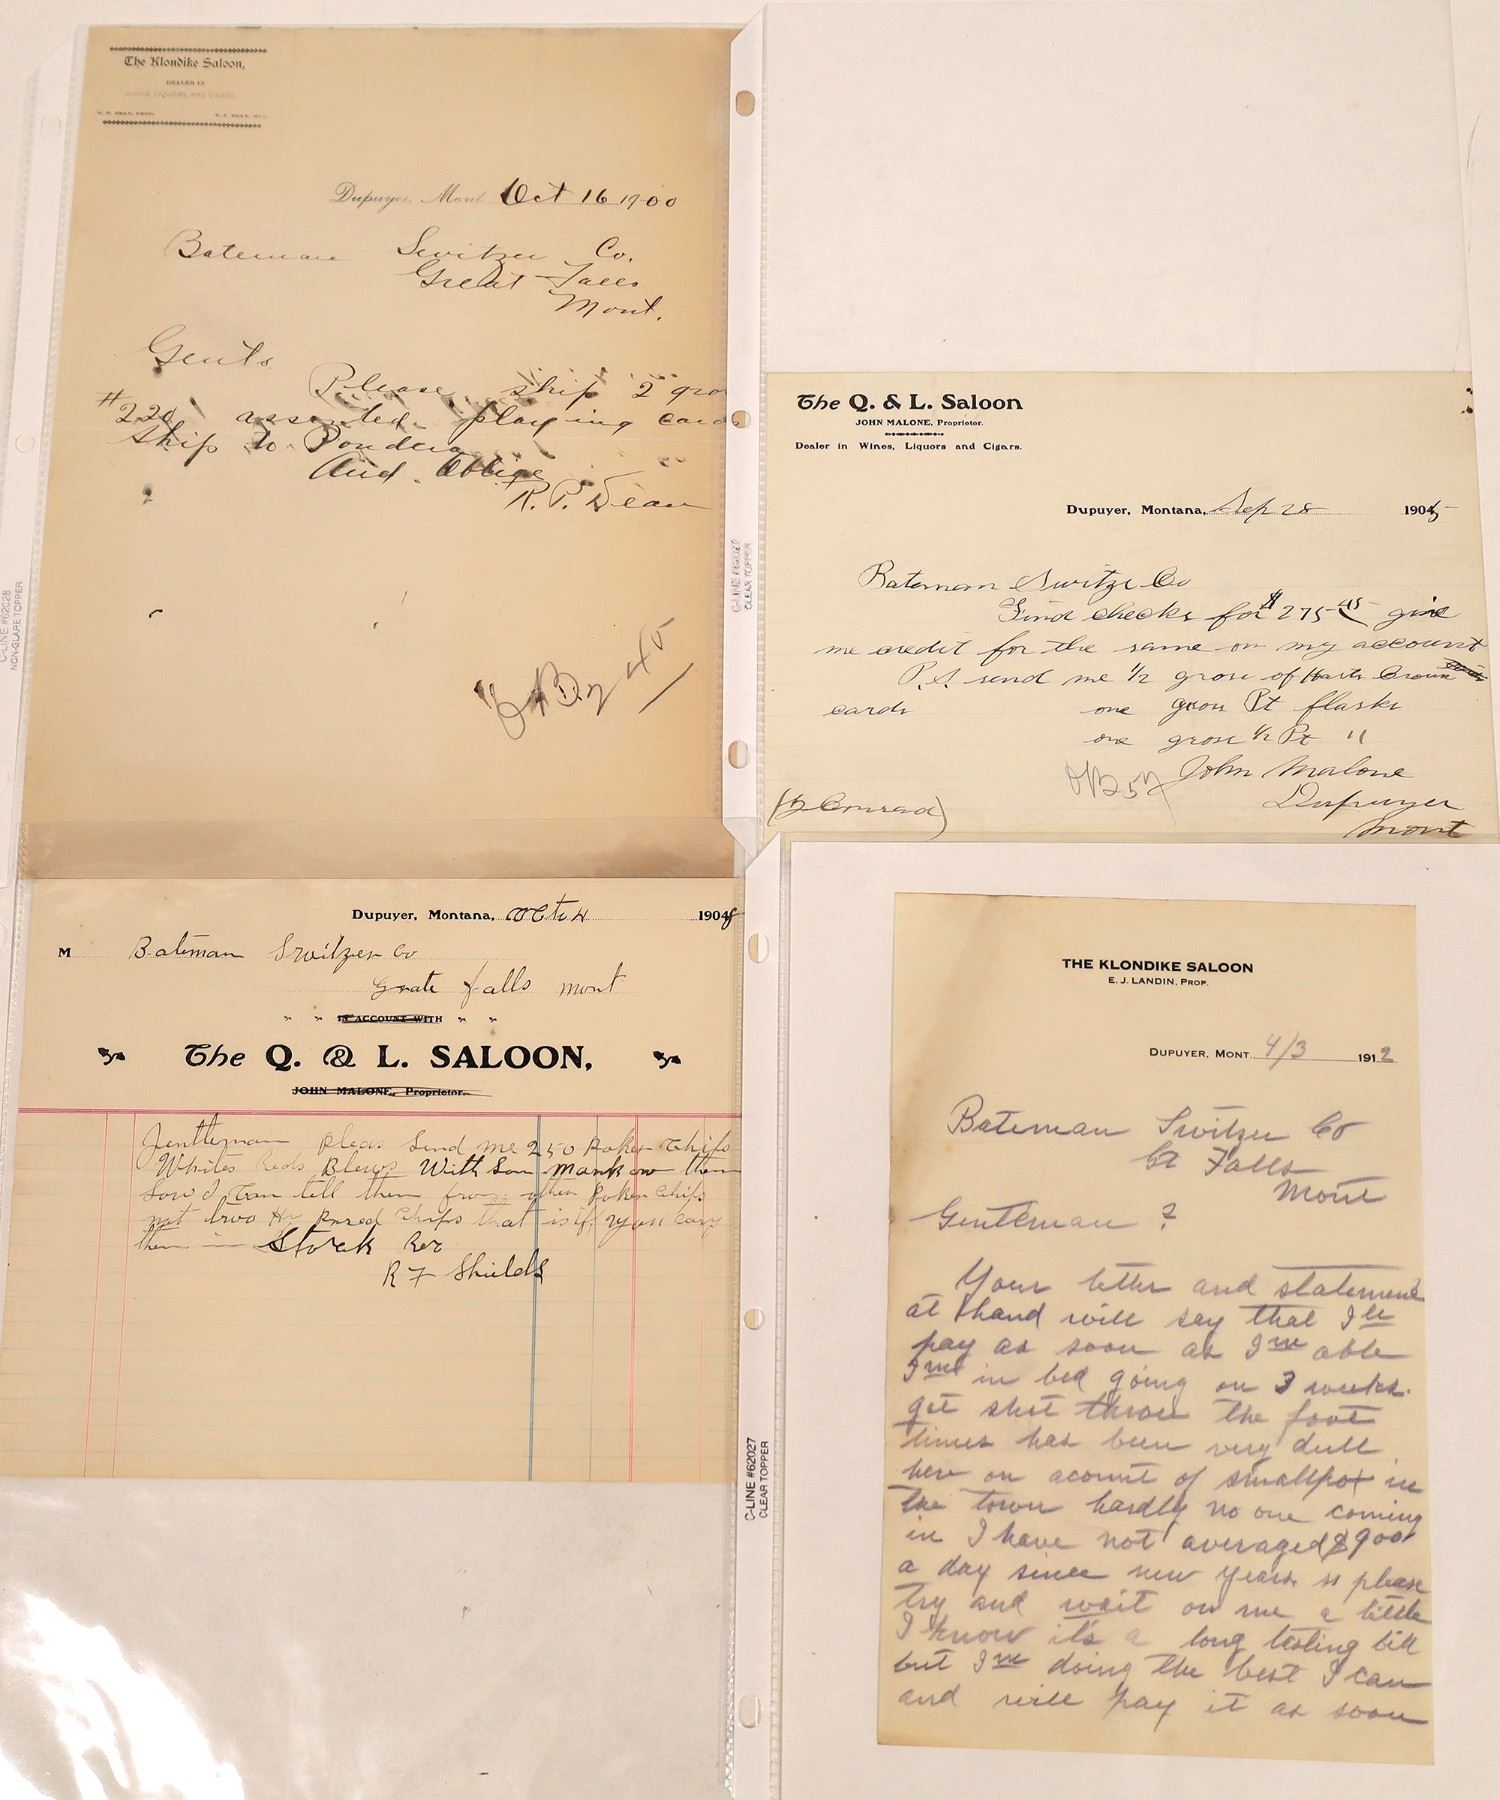 The Klondike Saloon,
DEALER IN
WINES, LIQUORS AND CIGARS
R. P. DEAN, PROP.
Dupuyer, Mont. Oct 16 1900
Bateman Switzer Co.
Great Falls
Mont.
Gents
Please ship 2 gro
#220 assorted playing card
Ship to Pondera
And Oblige
R. P. Dean
C-LINE #62028
NON-GLARE TOPPER
C-LINE #62027
CLEAR TOPPER
The Q. & L. Saloon
JOHN MALONE, Proprietor.
Dealer in Wines, Liquors and Cigars.
Dupuyer, Montana, Sep 28 1905
Bateman Switze Co
Find checks for $275-45 give
me credit for the same on my account
P.S. send me 1/2 grose of Harts Crown
cards one grous Pt flasks
one grose 1/2 Pt "
John Malone
Dupuyer
Mont
(Conrad)
Dupuyer, Montana, Oct 4 1908
M Bateman Switzer Co
Grate falls mont
" " IN ACCOUNT WITH " "
The Q. & L. SALOON,
JOHN MALONE, Proprietor.
Jentleman pleas Send me 250 Poker Chips
Whites Reds Blews With Som Mark on them
Sow I Can tell them from other Poker Chips
not two Hy priced Chips that is if you cary
them in Stock
R F Shields
C-LINE #62027
CLEAR TOPPER
THE KLONDIKE SALOON
E. J. LANDIN, PROP.
DUPUYER, MONT. 4/3 1912
Bateman Switzer Co
Gt Falls
Mont
Gentleman ?
Your letter and statement
at hand will say that Ill
pay as soon as Im able
Im in bed going on 3 weeks.
got shot throu the foot
times has been very dull
here on acount of smallpox in
the town hardly no one coming
in I have not averaged $900
a day since new years. so please
try and wait on me a little
I know its a long testing bill
but Im doing the best I can
and will pay it as soon